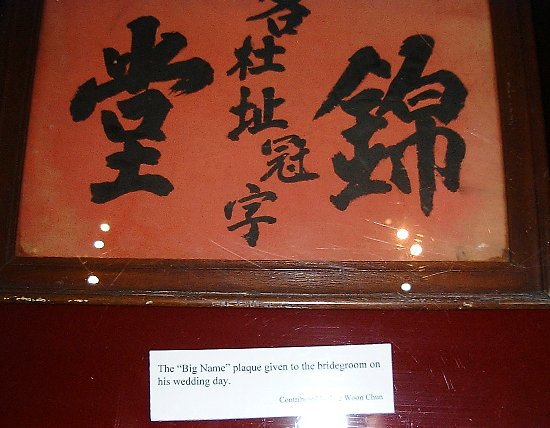 錦
杜址冠字
堂
The "Big Name" plaque given to the bridegroom on
his wedding day.
Woon Chun